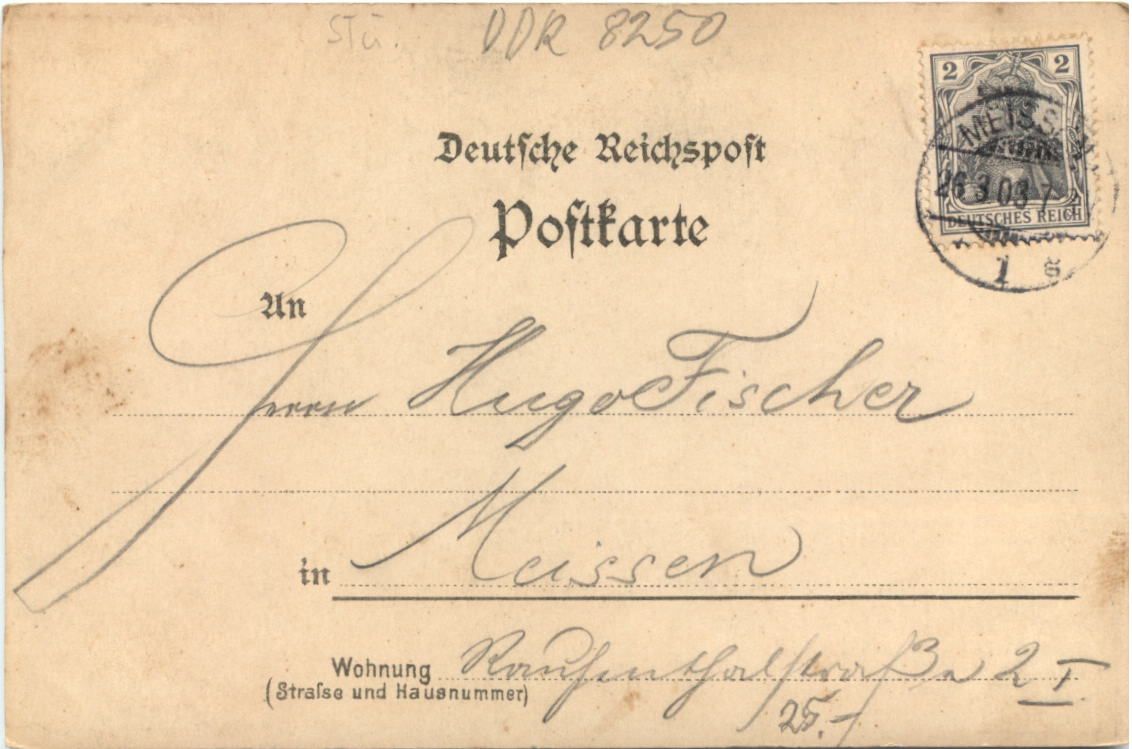 Stü. DDR 8250
2 2
MEISSEN
26 3 03 7
DEUTSCHES REICH
1 s
Deutsche Reichspost
Postkarte
An
Herrn Hugo Fischer
in Meissen
Wohnung
(Strasse und Hausnummer)
Rauhenthalstraße 2 I
25.-